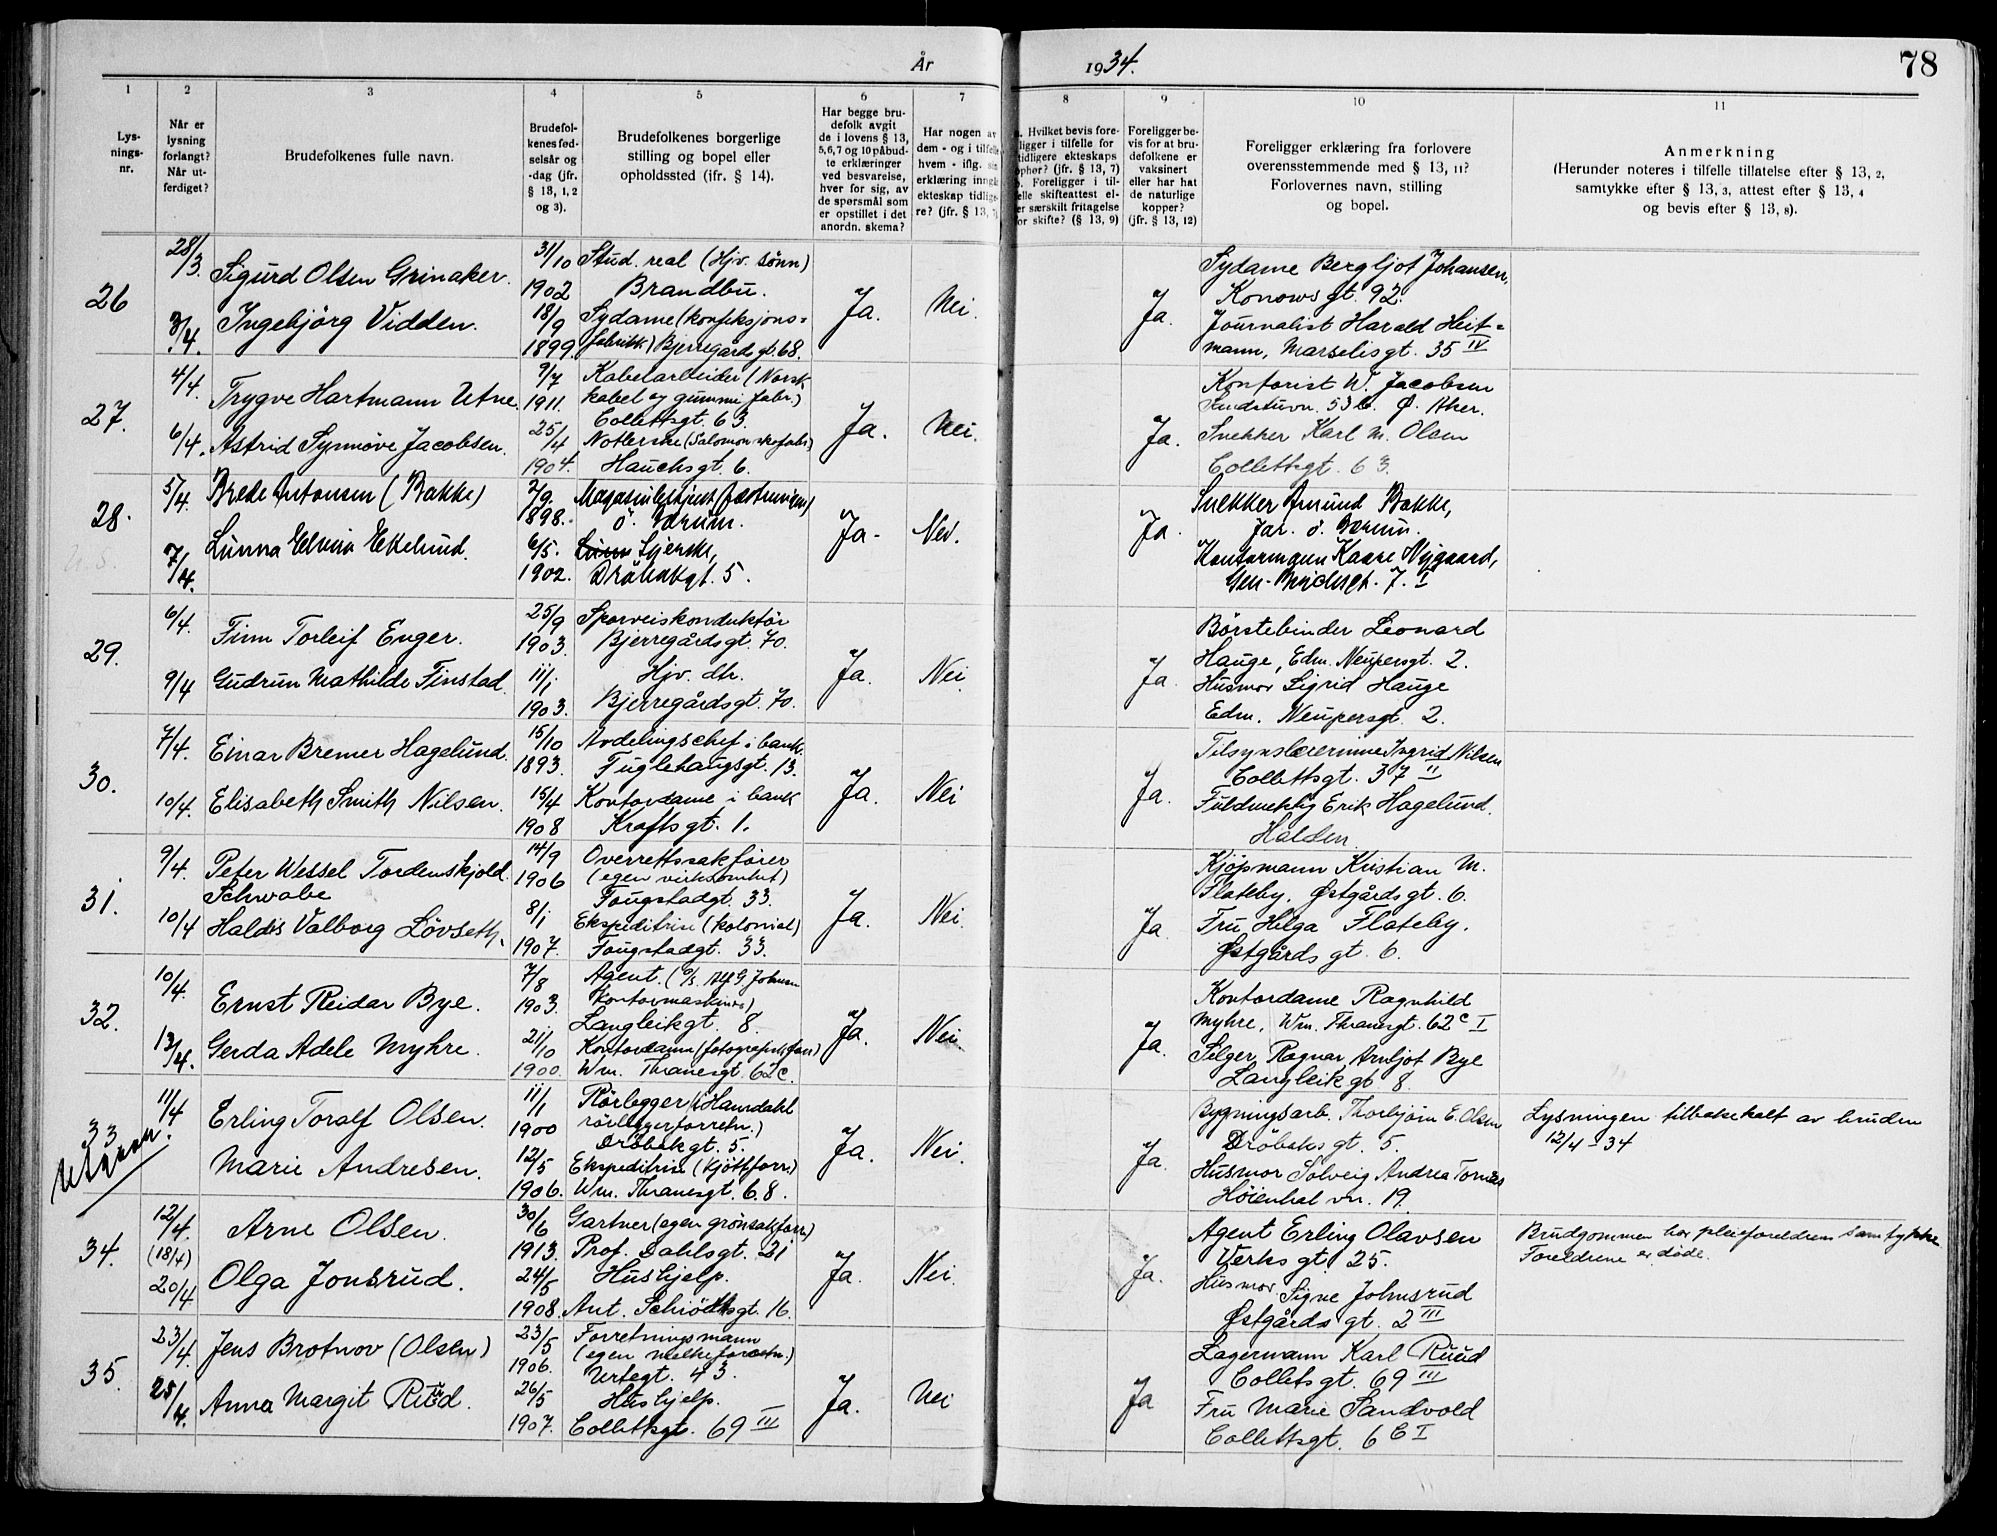 År 1934.
78
1
2
3
4
5
6
7
8
9
10
11
Lys-
nings-
nr.
Når er
lysning
forlangt?
Når ut-
ferdiget?
Brudefolkenes fulle navn.
Brudefol-
kenes fød-
selsår og
-dag (jfr.
§ 13, 1, 2
og 3).
Brudefolkenes borgerlige
stilling og bopel eller
opholdssted (ifr. § 14).
Har begge bru-
defolk avgit
de i lovens § 13,
5, 6, 7 og 10 påbud-
te erklæringer
ved besvarelse,
hver for sig, av
de spørsmål som
er opstillet i det
anordn. skema?
Har nogen av
dem - og i tilfelle
hvem - iflg. sin
erklæring inngå
ekteskap tidlige-
re? (jfr. § 13, 7)
a. Hvilket bevis fore-
ligger i tilfelle for
tidligere ekteskaps
ophør? (jfr. § 13, 7)
b. Foreligger i til-
felle skifteattest el-
ler særskilt fritagelse
for skifte? (§ 13, 9)
Foreligger be-
vis for at bru-
defolkene er
vaksinert
eller har hat
de naturlige
kopper?
(jfr. § 13, 12)
Foreligger erklæring fra forlovere
overensstemmende med § 13, 11?
Forlovernes navn, stilling
og bopel.
Anmerkning
(Herunder noteres i tilfelle tillatelse efter § 13, 2,
samtykke efter § 13, 3, attest efter § 13, 4
og bevis efter § 13, 8).
26
28/3.
3/4.
Sigurd Olsen Grinaker.
Ingebjörg Vidden.
31/10
1902
18/9
1899.
Stud. real (Hjv. sönn)
Brandbu.
Sydame (konfeksjons=
fabrikk) Bjerregårds gt. 68.
Ja.
Nei.
Ja.
Sydame Bergljot Johansen,
Konows gt. 92.
Journalist Harald Heit=
mann, Marselisgt. 35 IV
27.
4/4.
6/4.
Trygve Hartmann Utne.
Astrid Synnöve Jacobsen.
9/7
1911.
25/4
1904.
Kabelarbeider (Norsk
kabel og gummi fabr.)
Collettsgt. 63.
Notlerske (Salomon skofabr)
Hauchsgt. 6.
Ja.
Nei.
Ja.
Kontorist W. Jacobsen
53 b. Ø. Aker.
Snekker Karl M. Olsen
Collettsgt. 63.
28.
5/4.
7/4.
Brede Antonsen (Bakke)
Lunna Elvira Ekelund.
2/9.
1898.
6/5.
1902.
Ö. Bærum.
Syerske,
Dröbakgt. 5.
Ja.
Nei.
Ja.
Snekker Amund Bakke,
Jar. Ö. Bærum.
Kaare Nygaard,
7. I
29.
6/4.
9/4
Finn Torleif Enger.
Gudrun Mathilde Finstad.
25/9
1903.
11/1
1903.
Sporveiskonduktör
Bjerregårdsgt. 70.
Hjv. dtr.
Bjerregårdsgt. 70.
Ja.
Nei
Ja.
Börstebinder Leonard
Hauge, Edm. Neupersgt. 2.
Husmor Sigrid Hauge
Edm. Neupersgt. 2.
30.
7/4.
10/4.
Einar Bremer Hagelund.
Elisabeth Smith Nilsen.
15/10
1893.
15/4
1908
Avdelingschef i bank.
Fuglehaugsgt. 13.
Kontordame i bank
Kraftsgt. 1.
Ja.
Nei
Ja.
Tilsynslærerinne Ingrid Nilsen
Collettsgt. 37 II
Fuldmektig Erik Hagelund.
Halden.
31.
9/4.
10/4
Peter Wessel Tordenskjold
Schwabe
Haldis Valborg Lövseth.
14/9
1906
8/1
1907.
Overrettssakfører
(egen virksomhet)
Fougstadgt. 33.
Ekspeditrise (kolonial)
Fougstadgt. 33.
Ja.
Nei.
Ja.
Kjöpmann Kristian M.
Flateby, Østgårds gt. 6.
Fru Helga Flateby.
Østgårds gt. 6.
32.
10/4.
13/4.
Ernst Reidar Bye.
Gerda Adele Myhre.
7/8
1903.
21/10
1900.
Agent. (A/S. Alf G. Johnsen
Kontormaskiner)
Langleikgt. 8.
Kontordame (fotografisk forr)
Wm. Thranesgt. 62c.
Ja.
Nei.
Ja.
Kontordame Ragnhild
Myhre, Wm. Thranesgt. 62c I
Selger Ragnar Arnljot Bye
Langleik gt. 8.
33.
11/4
Erling Toralf Olsen.
Marie Andresen.
11/1
1900
12/5
1906.
Rörlegger (Hamdahl
rörleggerforretn.)
Dröbak gt. 5.
Ekspeditrise (kjöttforr.)
Wm. Thranesgt. 68.
Ja.
Nei.
Ja.
Bygningsarb. Thorbjörn E. Olsen
Dröbaks gt. 5.
Husmor Solveig Andrea Tornæs
Höienhal vn. 19.
Lysningen tilbakekalt av bruden
12/4 - 34
34.
12/4.
(18/4)
20/4
Arne Olsen.
Olga Jonsrud.
30/6
1913.
24/5
1908.
Gartner (egen grönsakforr.)
Prof. Dahlsgt. 21
Hushjelp.
Ant. Schiöthsgt. 16.
Ja.
Nei.
Ja.
Agent Erling Olavsen
Verks gt. 25.
Husmor Signe Johnsrud
Østgårds gt. 2 III
Brudgommen har pleieforeldrenes samtykke
Foreldrene er döde.
35.
23/4.
25/4.
Jens Brotnov (Olsen)
Anna Margit Ruud.
23/5
1906.
26/5
1907.
Forretningsmann
(egen melkeforretn.)
Urtegt. 43.
Hushjelp.
Collettsgt. 69 III
Ja.
Nei
Ja
Lagermann Karl Ruud
Colletsgt. 69 III
Fru Marie Sandvold
Collettsgt. 6 I